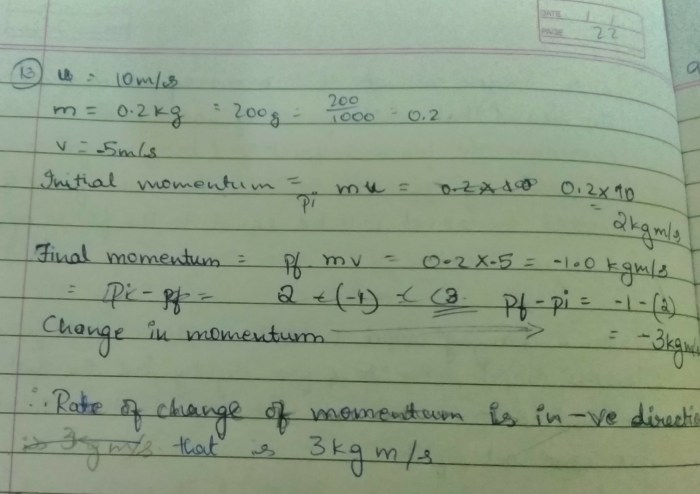 DATE / /
PAGE 22
13 u = 10m/s
m = 0.2kg = 200g = 200/1000 = 0.2
v = -5m/s
Initial momentum = pi mu = 0.2 x 100 0.2x10
= 2kgm/s
Final momentum = pf mv = 0.2 x -5 = -1.0 kgm/s
= pi - pf = 2 - (-1) = 3 pf - pi = -1 - (2)
Change in momentum = -3kgm
∴ Rate of change of momentum is in -ve directio
3kgm/s that is 3kg m/s